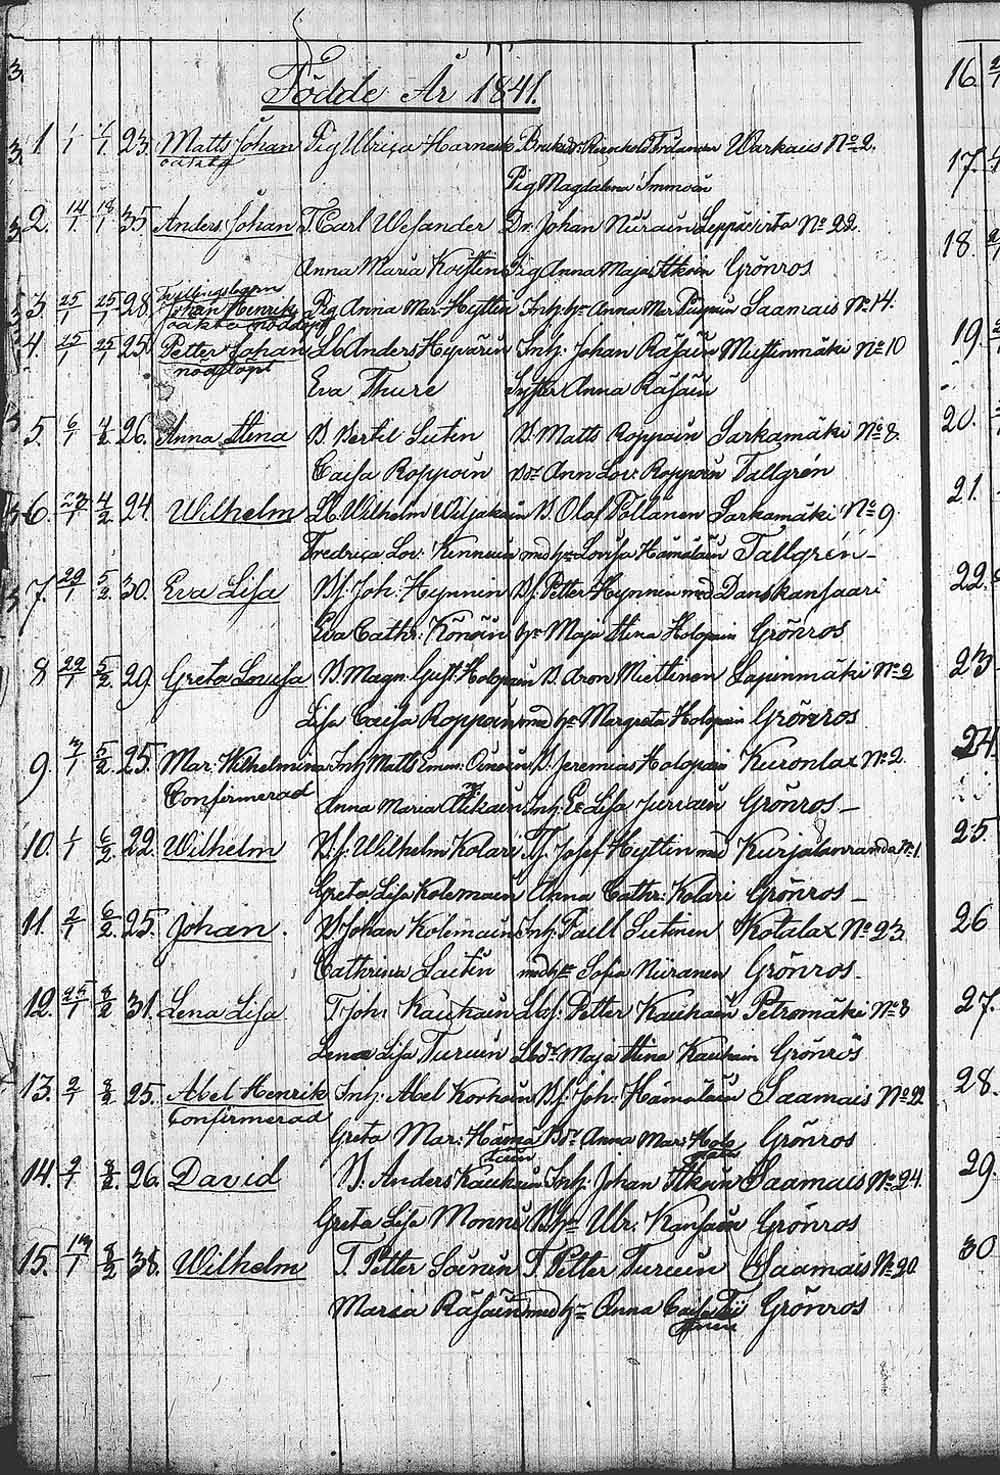 Födde År 1841.
1. 1/1 1/1 23. Matts Johan Pig Ulrica Harnesk Warkaus No 2.
oäkta Pig Magdalena Immoin
2. 14/1 18/1 35 Anders Johan T. Carl Wesander Dr. Johan Niirain Leppävirta No 22.
Anna Maria Pig Anna Maja Itkoin Grönros
Tvillingsbarn
3. 25/1 25/1 28. Johan Henrik Pig Anna Mar. Hyttin Inh: hu Anna Mar Saamais No 14.
oäkta nöddöpt
4. 25/1 25/1 25. Petter Johan Lb Anders Inh: Johan Räsäin Miettinmäki No 10
nöddöpt
Eva Thure Syster Anna Räsäin
5. 6/1 4/2 26. Anna Stina B. Bertil Lutin B. Matts Roppoin Sarkamäki No 8.
Caisa Roppoin Bdr Ann Lov. Roppoin Tallgrén
6. 23/1 4/2 24. Wilhelm Lb. Wilhelm Wiljakain B. Olof Pöllänen Sarkamäki No 9.
Fredrica Lov: Kinnuin med hu Lovisa Hämäläin Tallgrén
7. 29/1 5/2 30. Eva Lisa Bf. Joh: Hynnin Bf. Petter Hynnin med Danskansaari
Eva Cathr: Könöin hu Maja Stina Holopain Grönros
8 22/1 5/2 29. Greta Lovisa B. Magn. Gust. Holopain B. Aron Miettinen Sapinmäki No 2
Lisa Caisa Roppoin med hu Margreta Holopain Grönros
9. 3/1 5/2 25. Mar. Wilhelmina Inh Matts Eman: B. Jeremias Holopain Kuronlax No 2.
Confirmerad Anna Maria Inh: E. Lisa Jurvain Grönros
10. 1/1 6/2 22. Wilhelm Bf: Wilhelm Kolari Tf. Josef Hyttin med Kurjalanranda No 1.
Greta Lisa Kolemain Anna Cathr: Kolari Grönros
11. 2/1 6/2 25. Johan. B Johan Kolemain Inh: Paell Lutinen Kotalax No 23.
Cathrina Laitin med hu Sofia Niiranen Grönros
12. 25/1 8/2 31. Lena Lisa T. Joh: Kauhain Lbf: Petter Kauhain Petromäki No 8
Lena Lisa Turuin Lbdr Maja Stina Kauhain Grönros
13. 2/1 8/2 25. Abel Henrik Inh: Abel Korhoin Bf: Joh: Hämäläin Saamais No 22.
Confirmerad
Greta Mar: Hämäläin Bdr Anna Mar: Holopain Grönros
14. 2/1 8/2 26. David B. Anders Kauhain Inh: Johan Itkoin Saamais No 24.
Greta Lisa Monni B hu Ulr. Kansain Grönros
15. 13/1 8/2 38. Wilhelm T. Petter Soinin T. Petter Turuin Saamais No 20
Maria Räsäin med hu Anna Caisa Grönros
16.
17.
18.
19.
20.
21.
22.
23
24
25.
26
27.
28.
29.
30